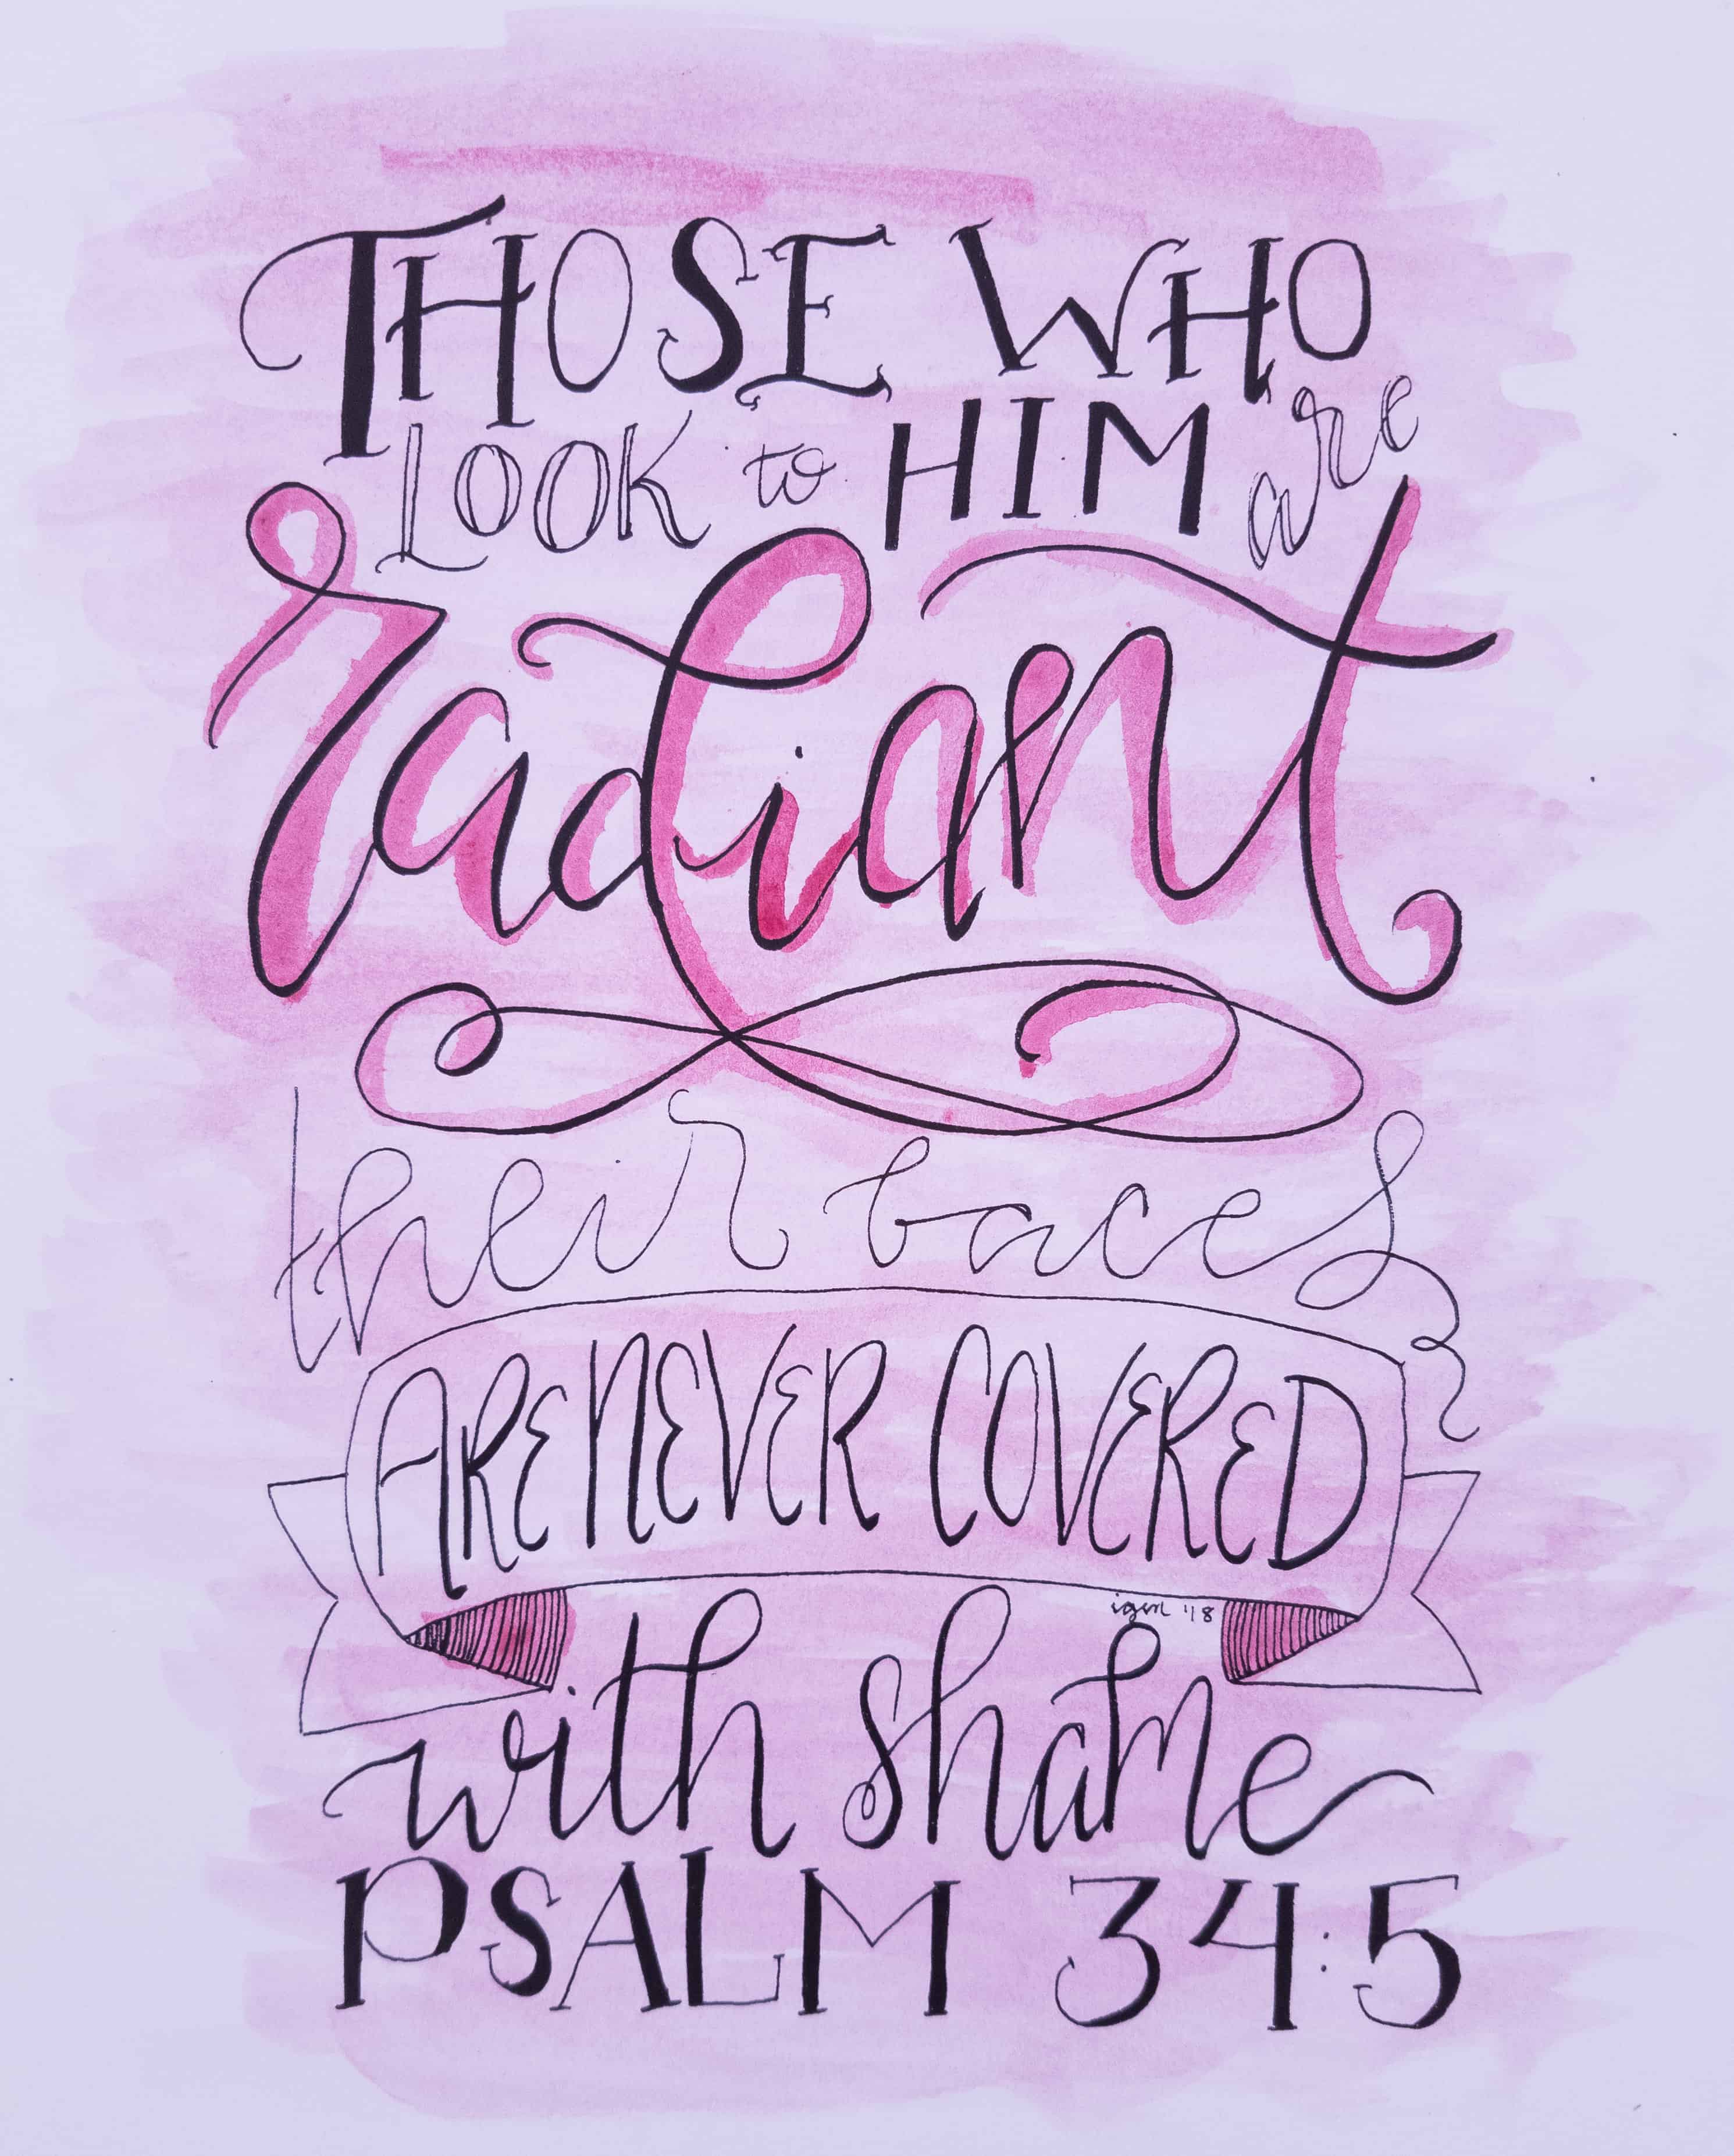 THOSE WHO
LOOK to HIM are
radiant
their faces
ARE NEVER COVERED
with shame
PSALM 34:5